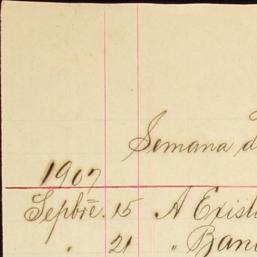 Semana d
1907
Sepbrē. 15 A Exist
" 21 " Ban